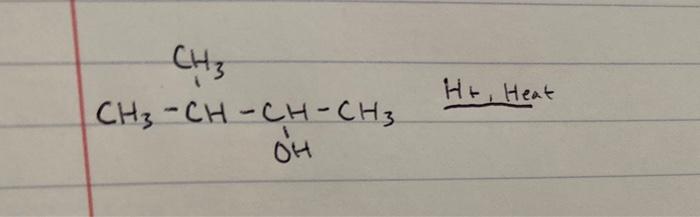 CH3
CH3-CH-CH-CH3 H+, Heat
OH